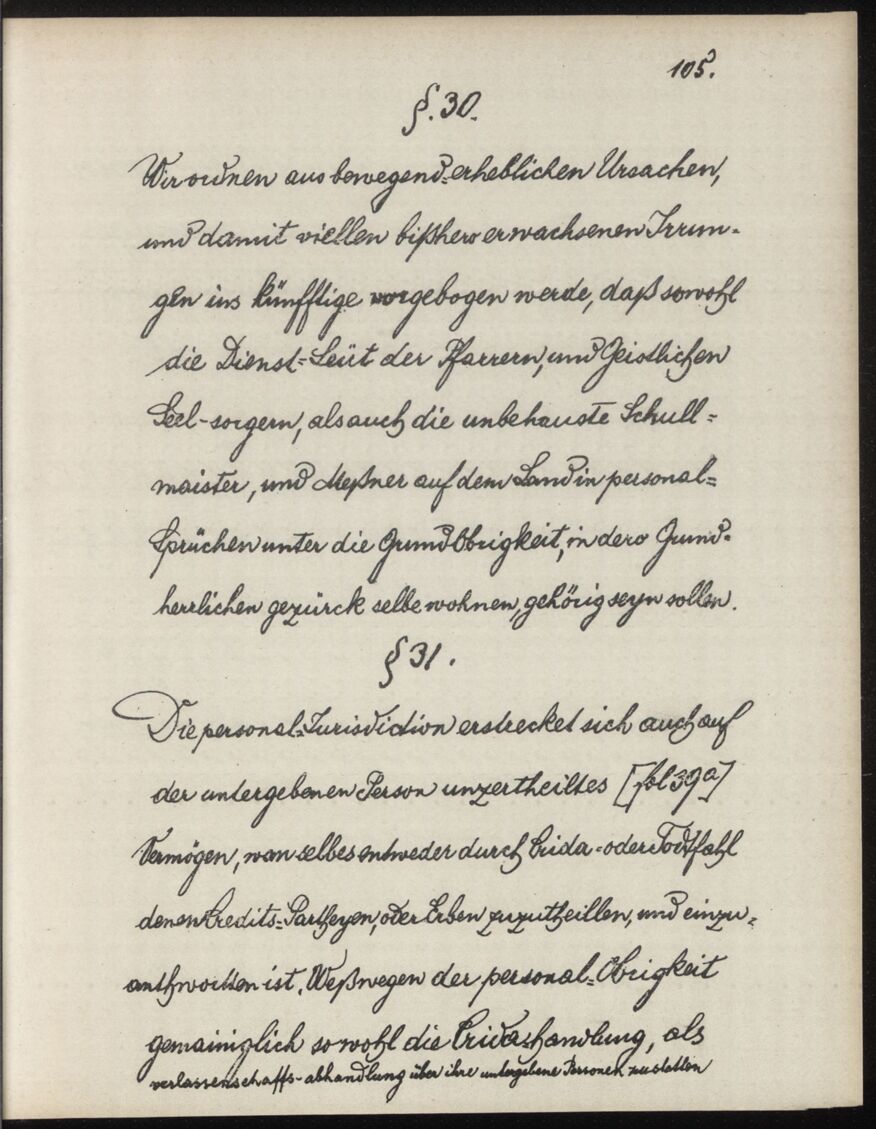 105.
§. 30.
Wir ordnen aus bewegend-erheblichen Ursachen,
und damit viellen bißhero erwachsenen Irrun-
gen ins künfftige vorgebogen werde, daß sowohl
die Dienst-Leüt der Pfarrern, und Geistlichen
Seel-sorgern, als auch die unbehauste Schull-
maister, und Meßner auf dem Land in personal-
Sprüchen unter die Grund Obrigkeit, in dero Grund-
herrlichen gezürck selbe wohnen, gehörig seyn sollen.
§ 31.
Die personal-Jurisdiction erstrecket sich auch auf
der untergebenen Person unzertheiltes [fol 39a]
Vermögen, wan selbes entweder durch Crida- oder Todtfahl
denen Kredits-Partheyen, oder Erben zuzutheillen, und einzu-
anthwortten ist. Weßwegen der personal-Obrigkeit
gemainiglich sowohl die Cridashandlung, als
verlassenschaffts-abhandlung über ihre untergebene Personen zustatten